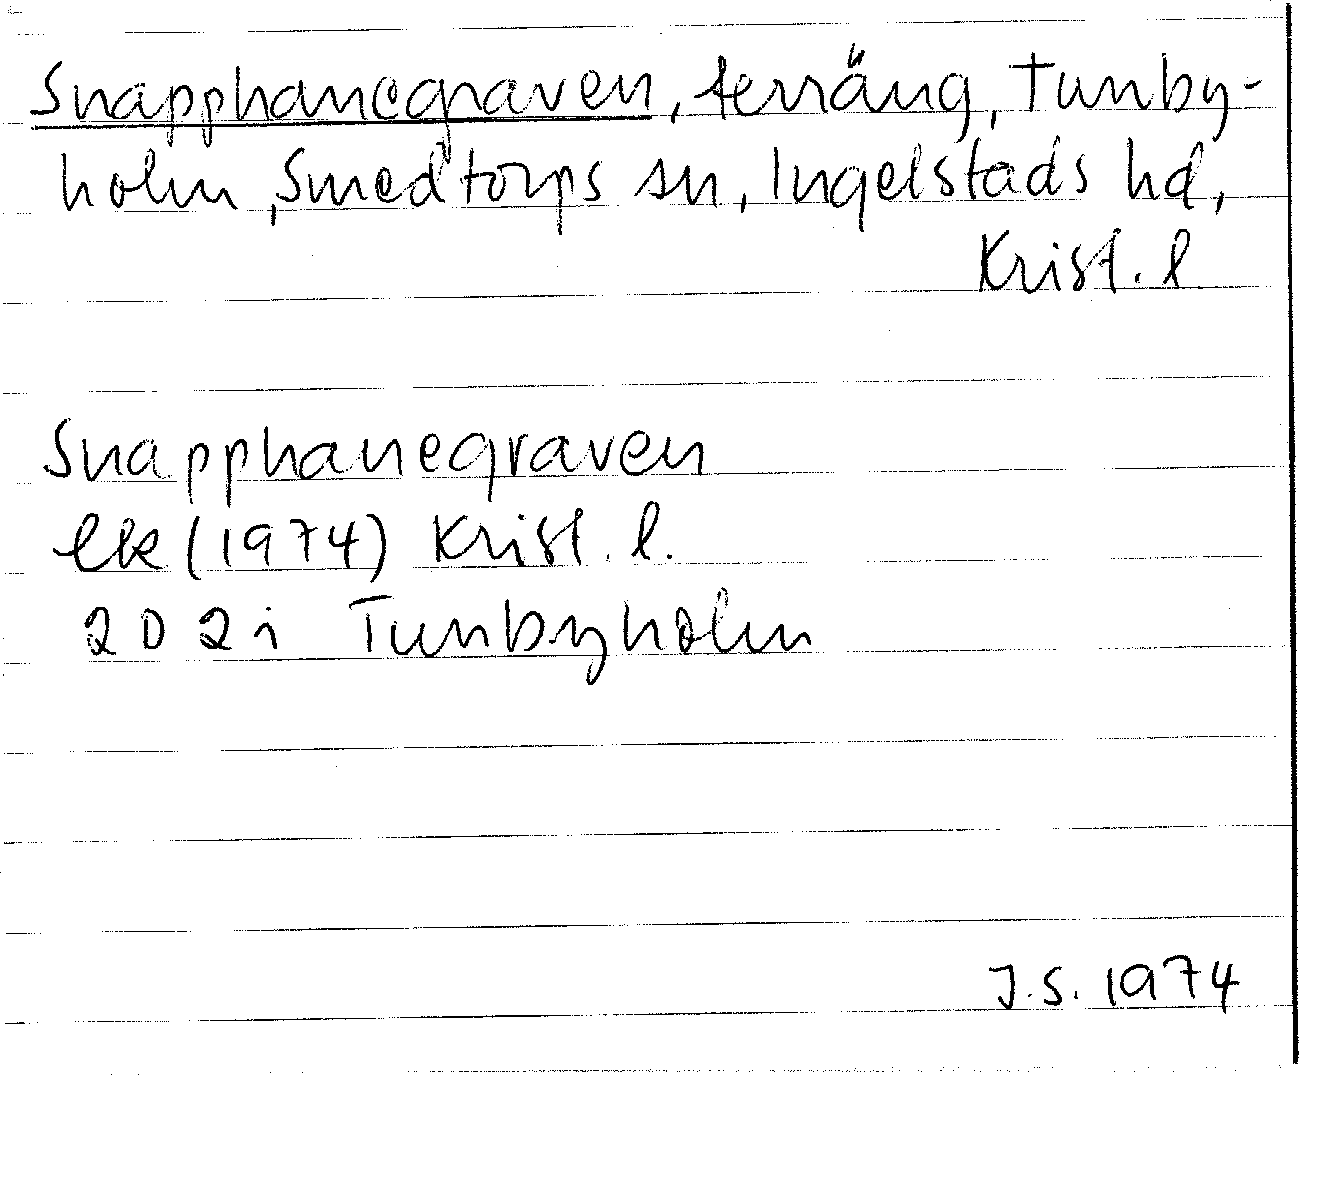 Snapphanegraven, terräng, Tunby-
holm, Smedtorps sn, Ingelstads hd,
Krist. l.
Snapphanegraven
ek (1974) Krist. l.
2 D 2 i Tunbyholm
J.S. 1974